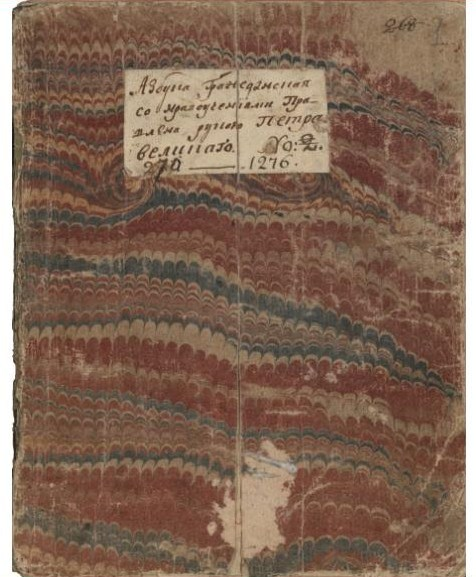 268
Азбука Гражданская
со нравоученіами Пра-
влена рукою Петра
великаго. No: 2.
270 ——— 1276.